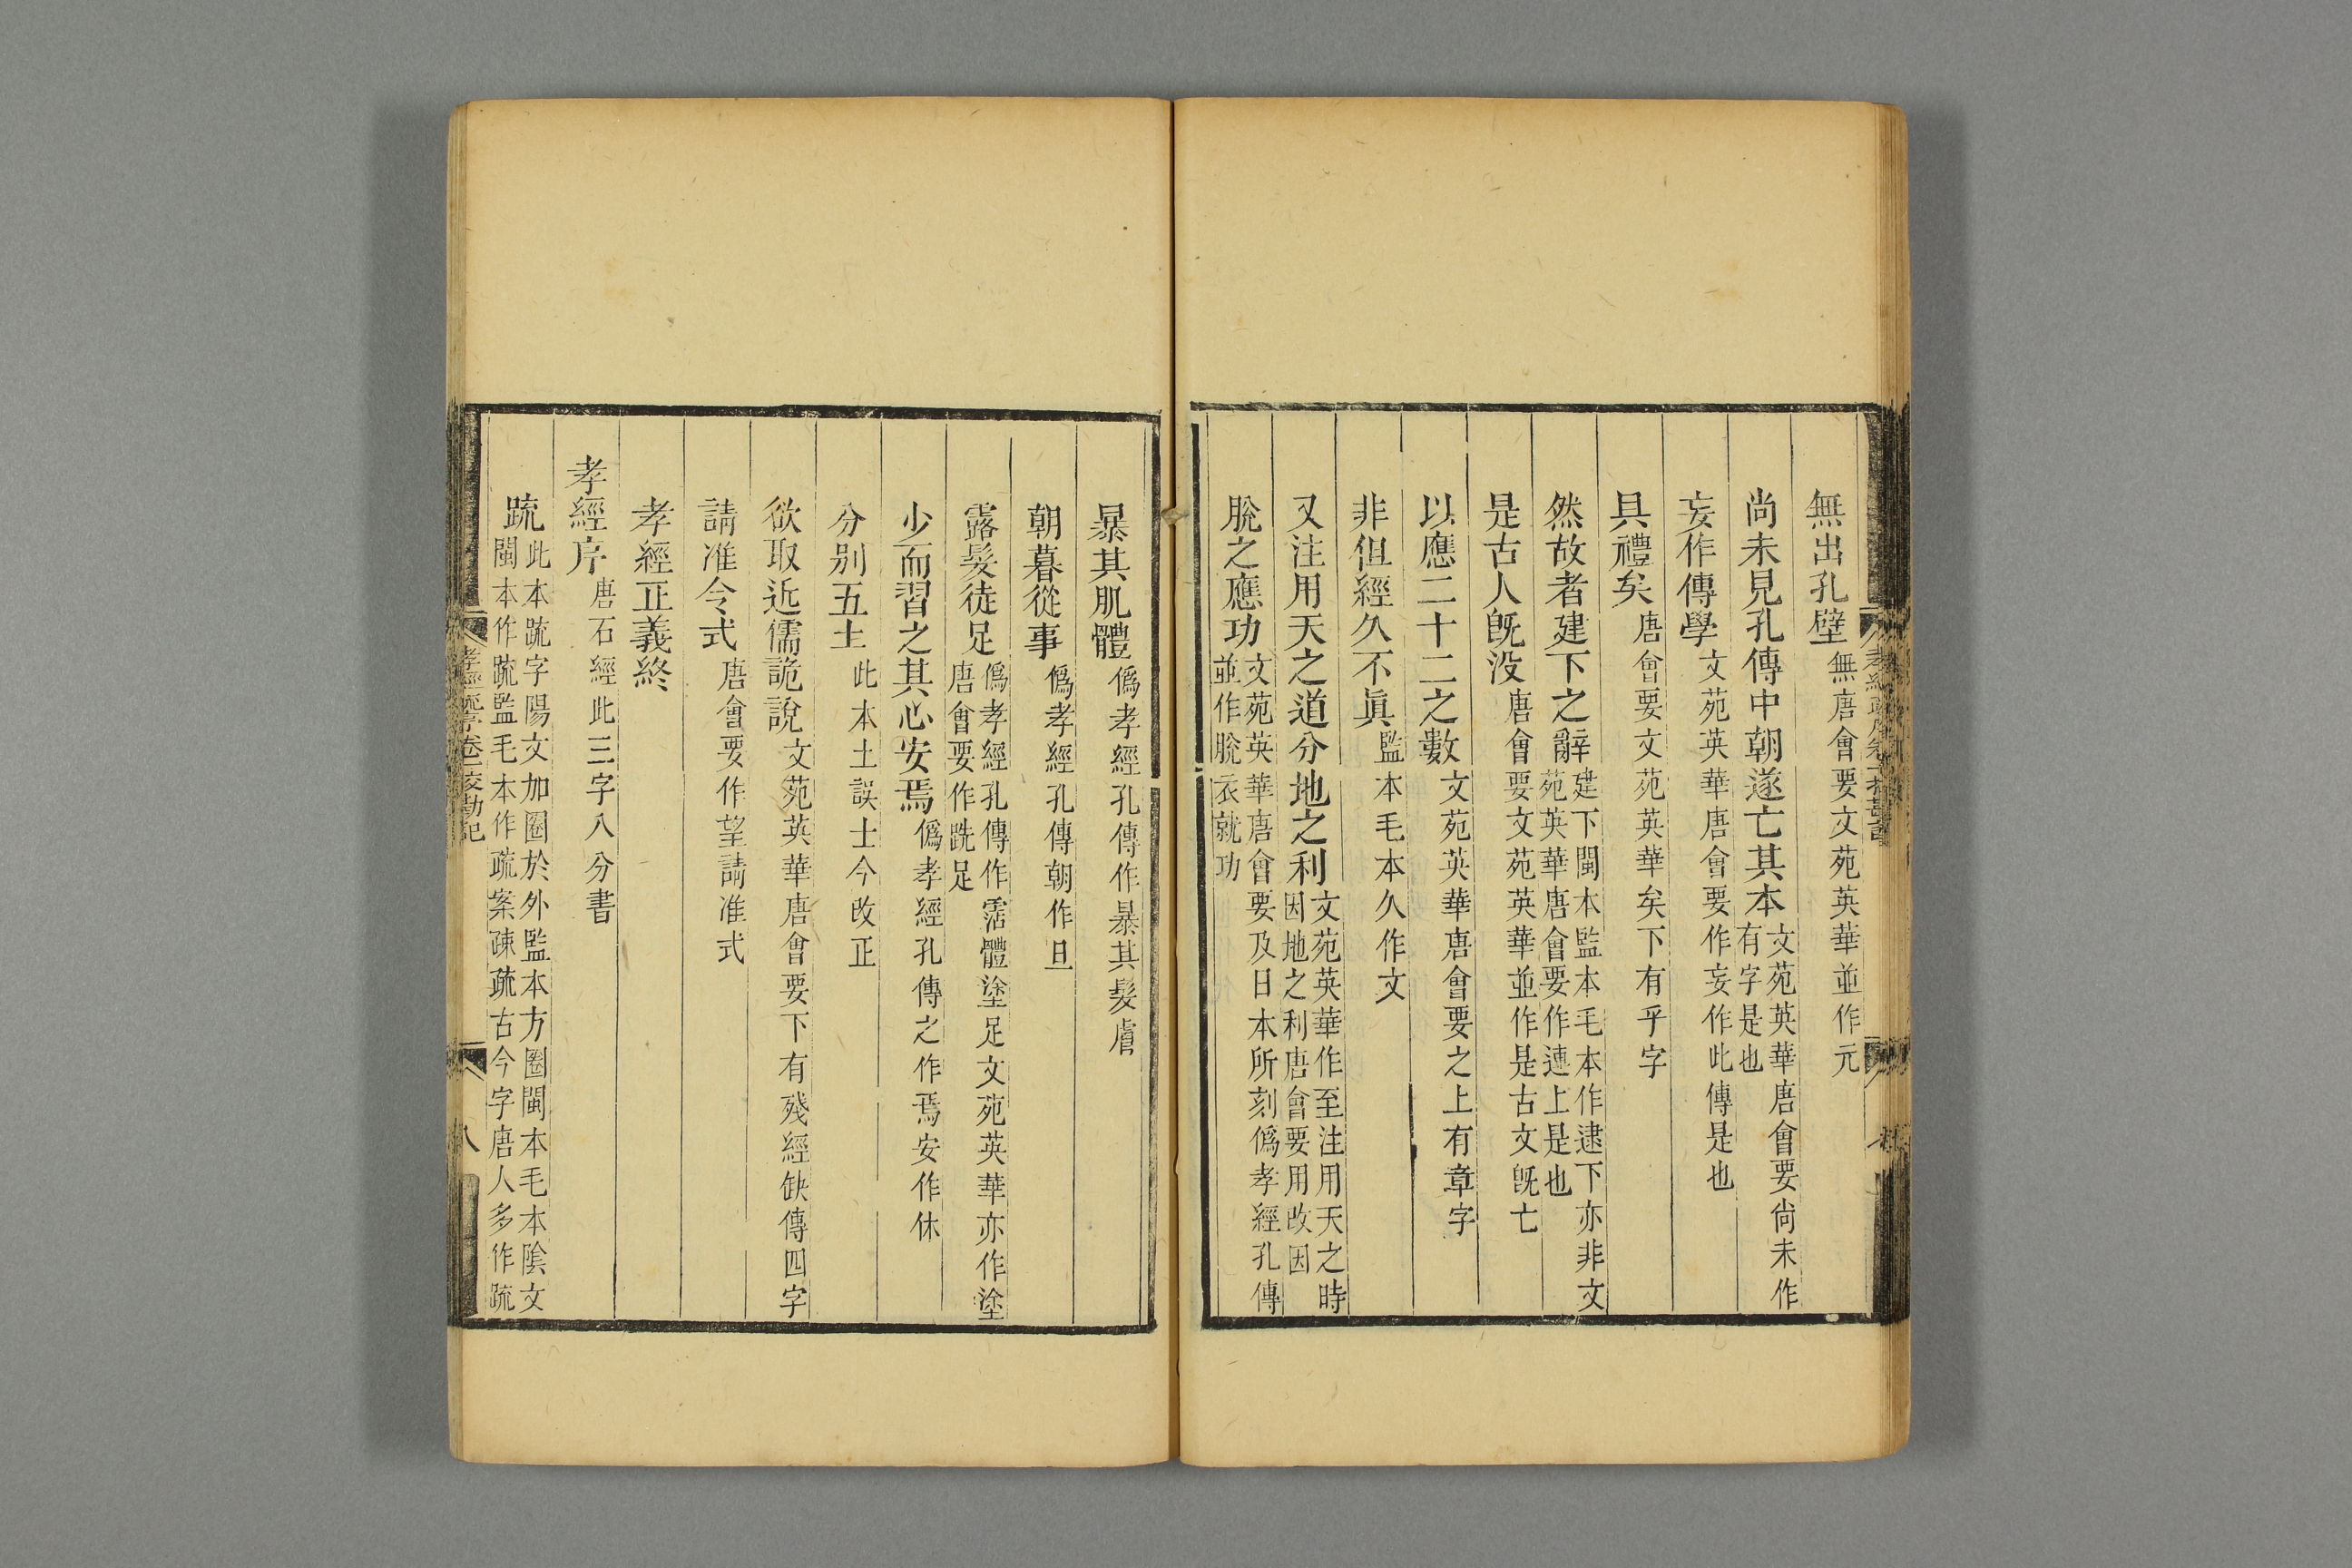 無出孔壁無唐會要文苑英華並作元
尚未見孔傳中朝遂亡其本文苑英華唐會要尙未作有字是也
妄作傳學文苑英華唐會要作妄作此傳是也
具禮矣唐會要文苑英華矣下有乎字
然故者建下之辭建下閩本監本毛本作逮下亦非文苑英華唐會要作連上是也
是古人旣没唐會要文苑英華並作是古文旣亡
以應二十二之數文苑英華唐會要之上有章字
非但經久不眞監本毛本久作文
又注用天之道分地之利文苑英華作至注用天之時因地之利唐會要用改因
脫之應功文苑英華唐會要及日本所刻僞孝經孔傳並作脫衣就功
暴其肌體僞孝經孔傳作暴其髮膚
朝暮從事僞孝經孔傳朝作旦
露髮徒足僞孝經孔傳作霑體塗足文苑英華亦作塗唐會要作跣足
少而習之其心安焉僞孝經孔傳之作焉安作休
分別五土此本土誤士今改正
欲取近儒詭說文苑英華唐會要下有殘經缺傳四字
請准令式唐會要作望請准式
孝經正義終
孝經序唐石經此三字八分書
疏此本疏字陽文加圈於外監本方圈閩本毛本陰文閩本作䟽監毛本作疏案疎疏古今字唐人多作䟽
孝經疏序卷一挍勘記
八